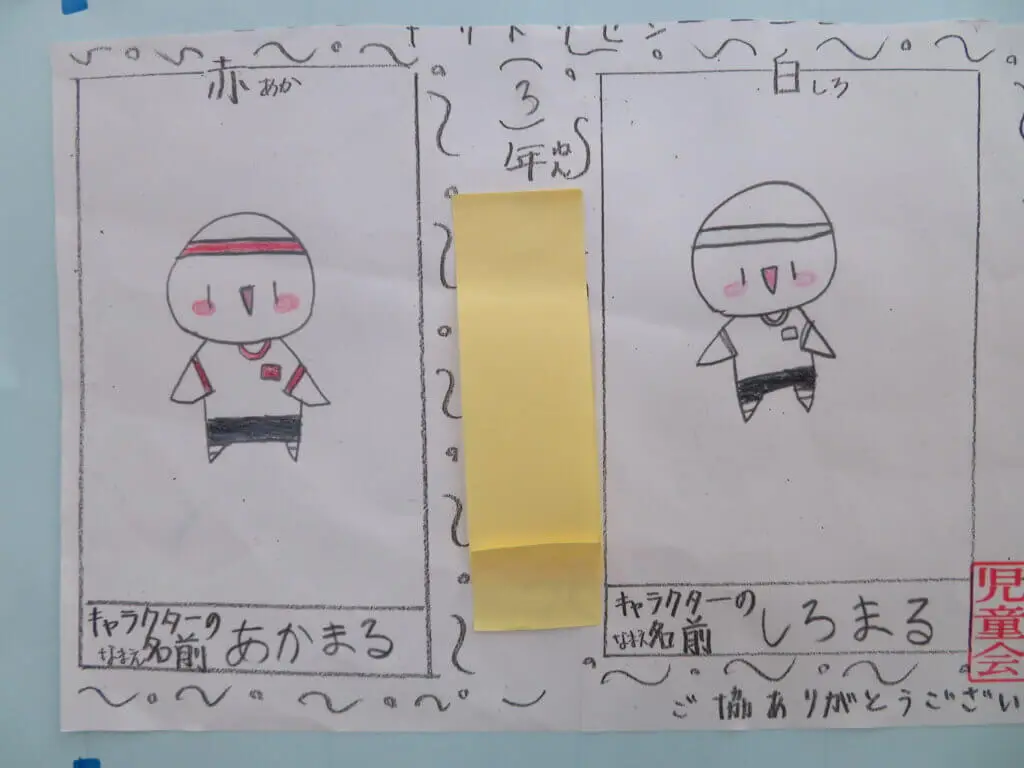 赤 あか
(3
年 ねん)
キャラクターの
名前 なまえ
あかまる
白 しろ
キャラクターの
名前 なまえ
しろまる
児童会
ご協ありがとうござい